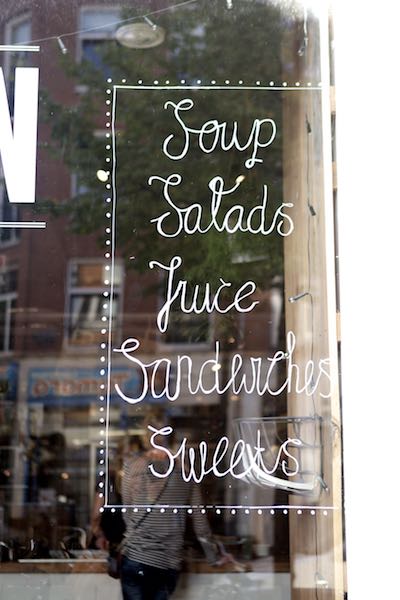 N
Soup
Salads
Juice
Sandwiches
Sweets